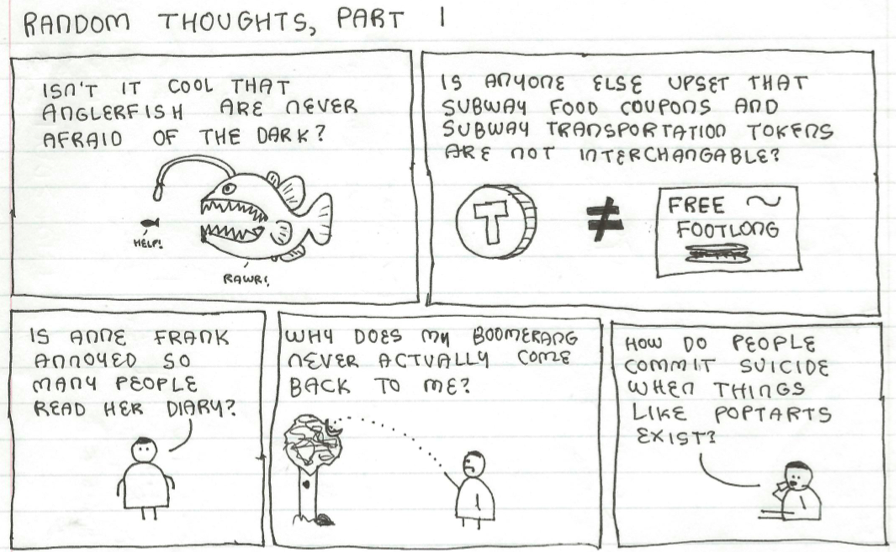 RANDOM THOUGHTS, PART 1
ISN'T IT COOL THAT
ANGLERFISH ARE NEVER
AFRAID OF THE DARK?
HELP!
RAWR!
IS ANYONE ELSE UPSET THAT
SUBWAY FOOD COUPONS AND
SUBWAY TRANSPORTATION TOKENS
ARE NOT INTERCHANGABLE?
T
≠
FREE ~
FOOTLONG
IS ANNE FRANK
ANNOYED SO
MANY PEOPLE
READ HER DIARY?
WHY DOES MY BOOMERANG
NEVER ACTUALLY COME
BACK TO ME?
HOW DO PEOPLE
COMMIT SUICIDE
WHEN THINGS
LIKE POPTARTS
EXIST?